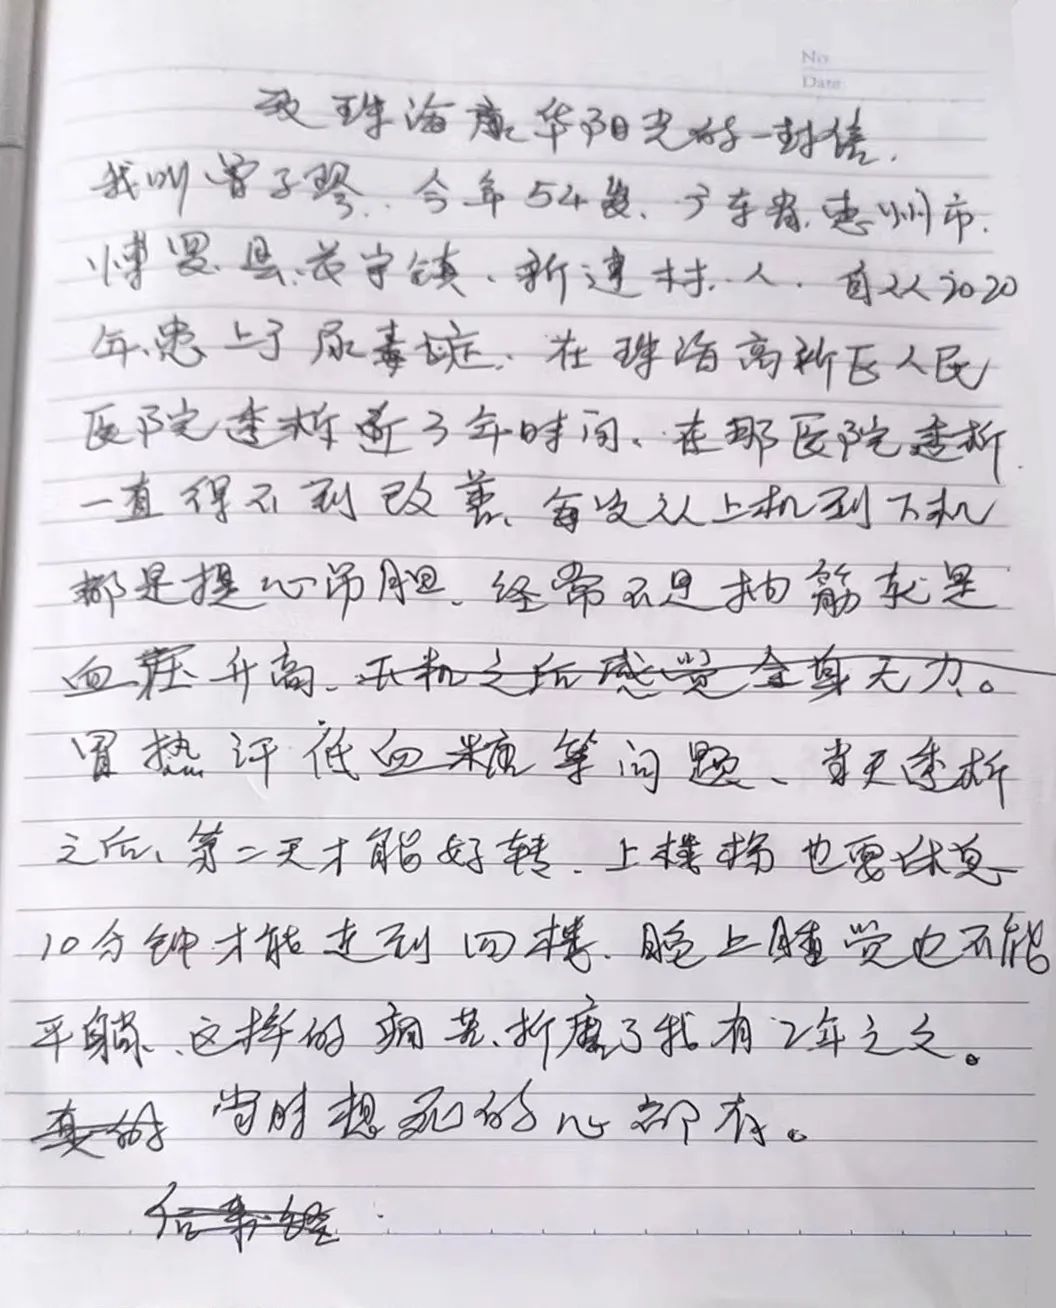 No
Date
致珠海康华阳光的一封信.
我叫曾子璆.今年54岁、广东省.惠州市.
博罗.县.长宁镇、新建村.人.自从2020
年.患上了尿毒症.在珠海高新区人民
医院透析近3年时间、在那医院透析
一直得不到改善、每次从上机到下机
都是提心吊胆、经常不是抽筋就是
血压升高、下机之后感觉全身无力。
冒热汗低血糖等问题、当天透析
之后、第二天才能好转.上楼梯也要休息
10分钟才能走到四楼.晚上睡觉也不能
平躺、这样的痛苦、折磨了我有2年之久。
真的 当时想死的心都有。
后来经